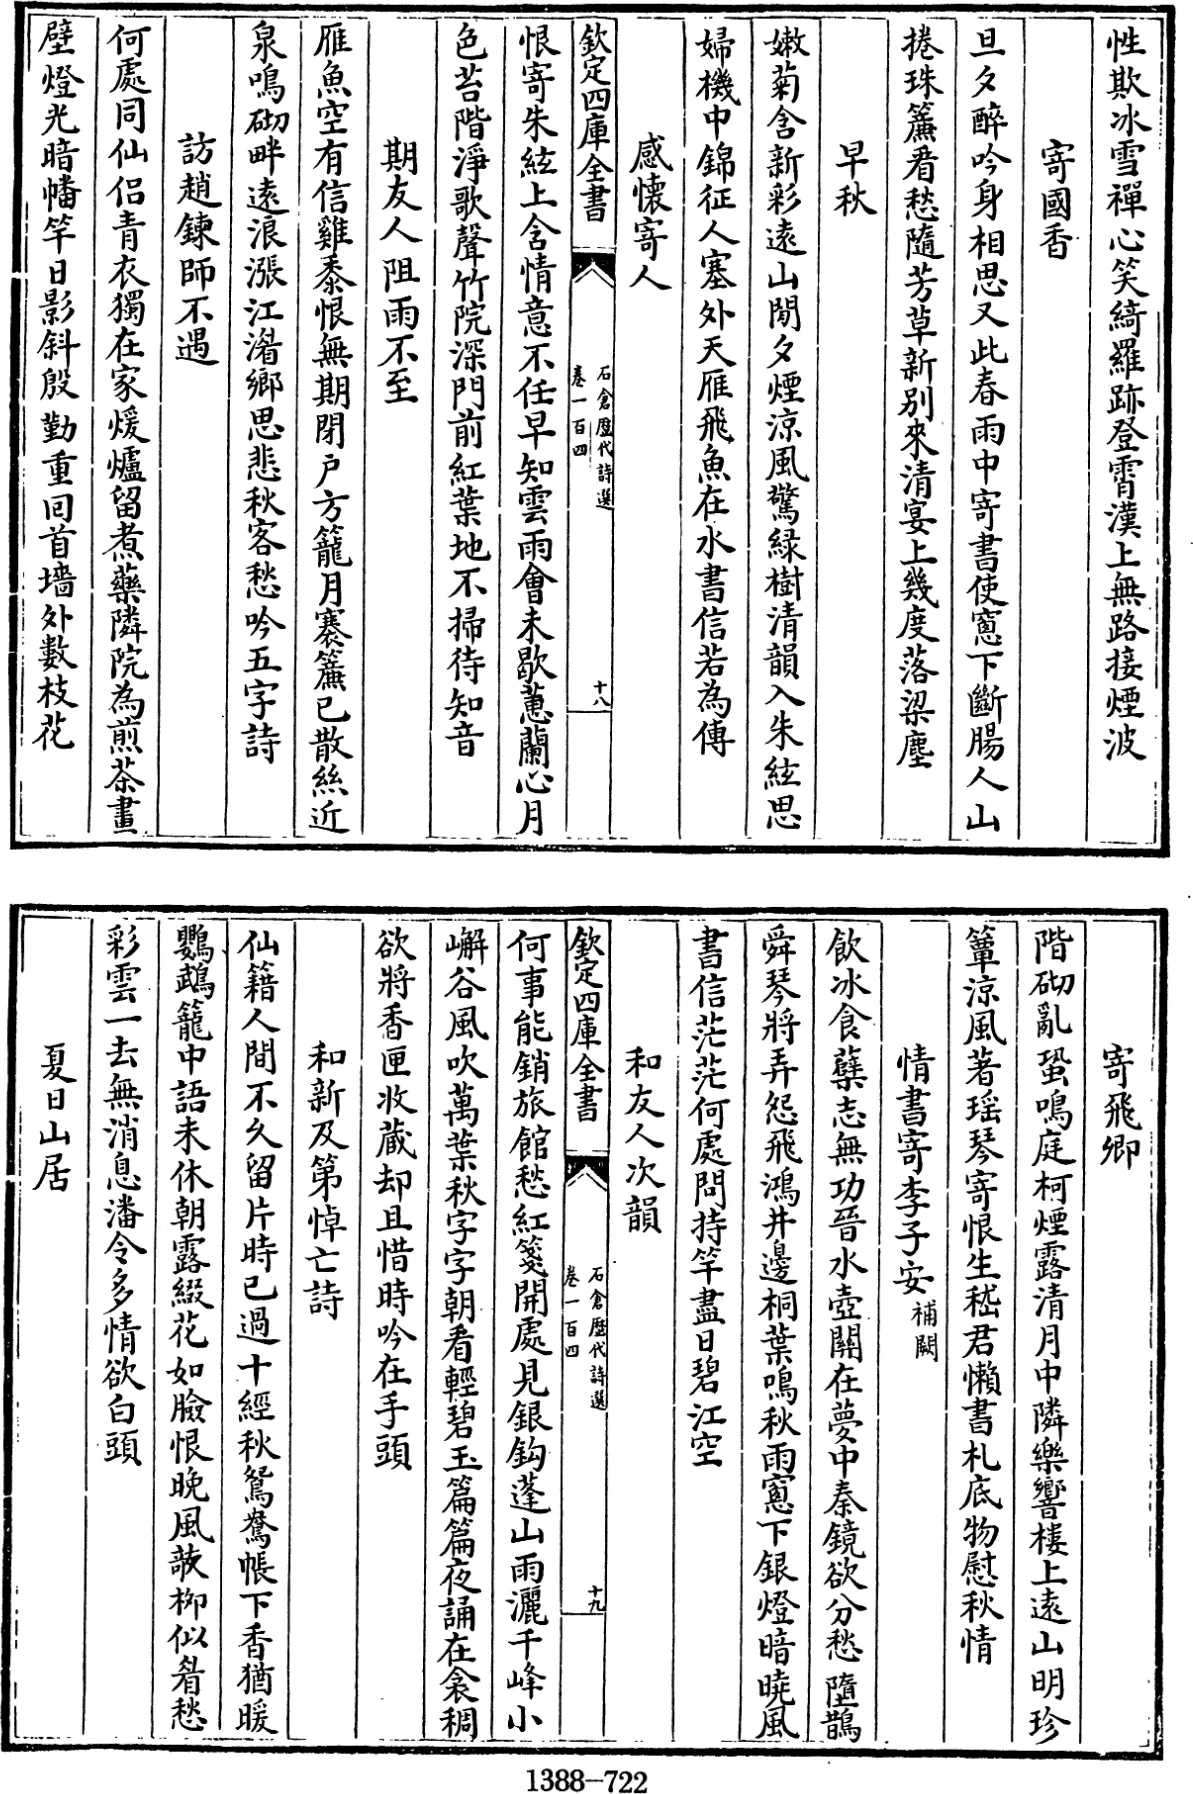 性欺冰雪禪心笑綺羅跡登霄漢上無路接煙波
寄國香
旦夕醉吟身相思又此春雨中寄書使窻下斷腸人山
捲珠簾㸔愁隨芳草新別來清宴上幾度落梁塵
早秋
嫩菊含新彩遠山閒夕煙涼風驚緑樹清韻入朱絃思
婦機中錦征人塞外天雁飛魚在水書信若為傳
感懷寄人
欽定四庫全書
石倉歷代詩選
卷一百四
十八
恨寄朱絃上含情意不任早知雲雨會未歇蕙蘭心月
色苔階淨歌聲竹院深門前紅葉地不掃待知音
期友人阻雨不至
雁魚空有信雞黍恨無期閉户方籠月褰簾已散絲近
泉鳴砌畔遠浪漲江湄鄉思悲秋客愁吟五字詩
訪趙鍊師不遇
何處同仙侣青衣獨在家煖爐留煮藥隣院為煎茶畫
壁燈光暗幡竿日影斜殷勤重回首墻外數枝花
寄飛卿
階砌亂蛩鳴庭柯煙露清月中隣樂響樓上遠山明珍
簟凉風著瑶琴寄恨生嵇君懶書札底物慰秋情
情書寄李子安補闕
飲冰食蘖志無功晉水壺關在夢中秦鏡欲分愁墮鵲
舜琴將弄怨飛鴻井邊桐葉鳴秋雨窻下銀燈暗曉風
書信茫茫何處問持竿盡日碧江空
和友人次韻
欽定四庫全書
石倉歷代詩選
卷一百四
十九
何事能銷旅館愁紅箋開處見銀鈎蓬山雨灑千峰小
嶰谷風吹萬葉秋字字朝看輕碧玉篇篇夜誦在衾裯
欲將香匣收藏却且惜時吟在手頭
和新及第悼亡詩
仙籍人間不久留片時已過十經秋鴛鴦帳下香猶暖
鸚鵡籠中語未休朝露綴花如臉恨晚風欹柳似眉愁
彩雲一去無消息潘令多情欲白頭
夏日山居
1388-722